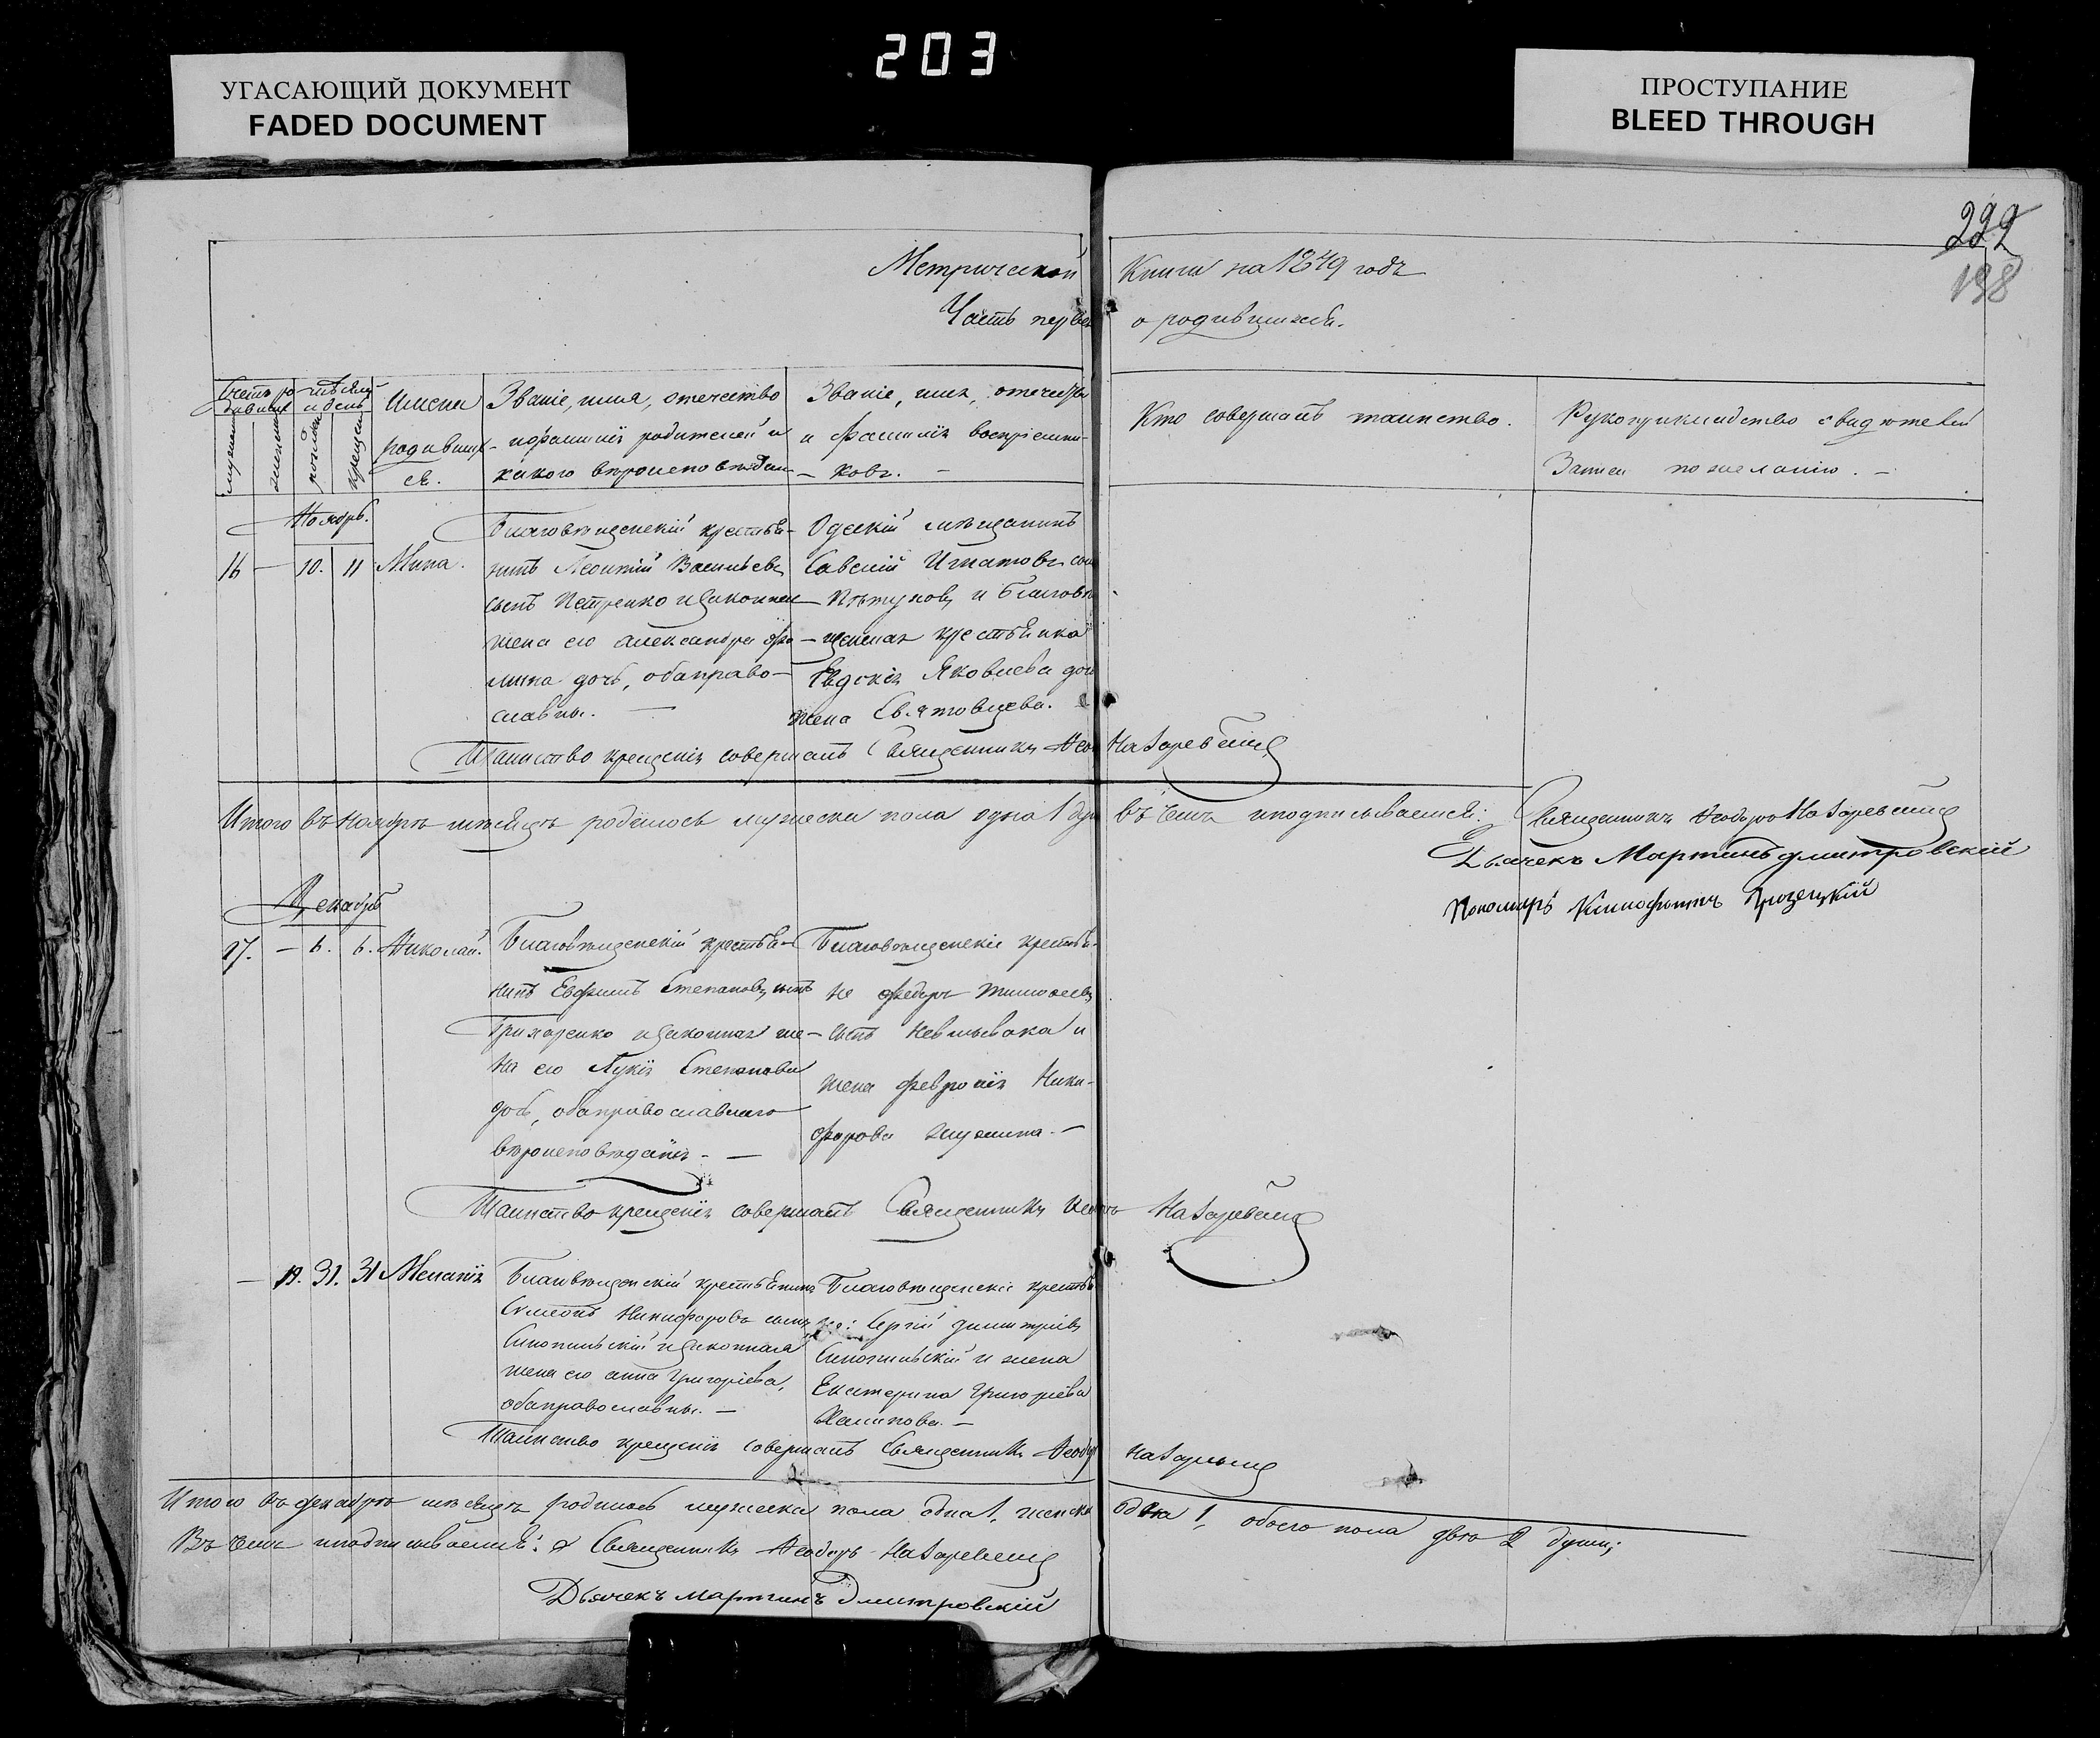 203
УГАСАЮЩИЙ ДОКУМЕНТ
FADED DOCUMENT
ПРОСТУПАНИЕ
BLEED THROUGH
222
198
Метрической Книги на 1879 годъ
Часть первая о родившихся.
Счетъ родившихся
мужеска
женска
Мѣсяцъ и день
рожденія
крещенія
Имена родившихся.
Званіе, имя, отчество
и фамилія родителей и
какого вѣроисповѣданія
Званіе, имя, отчество
и фамилія воспріемни-
ковъ. —
Кто совершалъ таинство.
Рукоприкладство свидѣтелей
Записи по желанію. —
Ноябрь.
16 — 10. 11 Мина.
Благовѣщенскій крестья-
нинъ Леонтій Васильевъ
сынъ Петренко и законная
жена его Александра
дочь, оба право-
славны. —
Одескій мѣщанинъ
Савелій Игнатовъ сынъ
Пѣтуховъ и Благовѣ-
щенская крестьянка
Евдокія Яковлева дочь
жена
Таинство крещенія совершалъ Священникъ Назаревичъ
Итого въ Ноябрѣ мѣсяцѣ родилось мужеска пола одна 1 душа въ чемъ и подписываемся: Священникъ Ѳеодоръ Назаревичъ
Дьячекъ Мартинъ Дмитровскій
Пономарь Ксенофонтъ
Декабрь
17. — 6. 6. Николай.
Благовѣщенскій крестья-
нинъ Евфимъ Степановъ сынъ
и законная же-
на его Лукія Степанова
дочь, оба православнаго
вѣроисповѣданія. —
Благовѣщенскіе крестья-
не Федоръ Тимофеевъ
сынъ и
жена Февронія Ники-
форова —
Таинство крещенія совершалъ Священникъ Назаревичъ
— 19. 31. 31 Меланія
Благовѣщенскій крестьянинъ
Симеонъ Никифоровъ сынъ
Синопильскій и законная
жена его Анна Григоріева,
оба православны. —
Благовѣщенскіе крестья-
не: Сергій Димитріевъ
Синопильскій и жена
Екатерина Григоріева
Таинство крещенія совершалъ Священникъ Ѳеодоръ Назаревичъ
Итого въ декабрѣ мѣсяцѣ родилось мужеска пола одна 1, женска одна 1, обоего пола двѣ 2 души;
Въ чемъ и подписываемся: Священникъ Ѳеодоръ Назаревичъ
Дьячекъ Мартинъ Дмитровскій